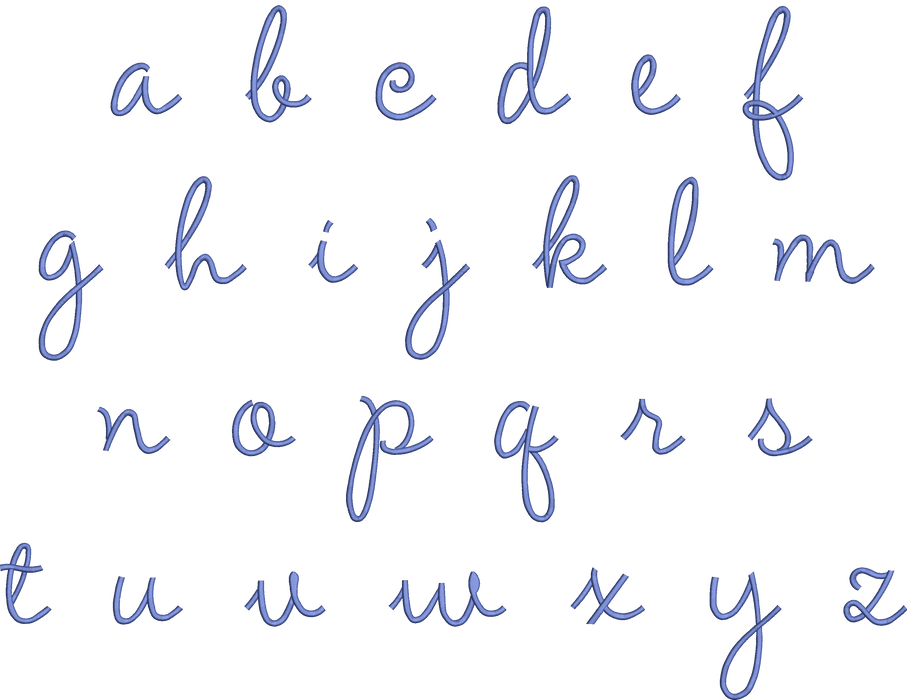 a b c d e f
g h i j k l m
n o p q r s
t u v w x y z